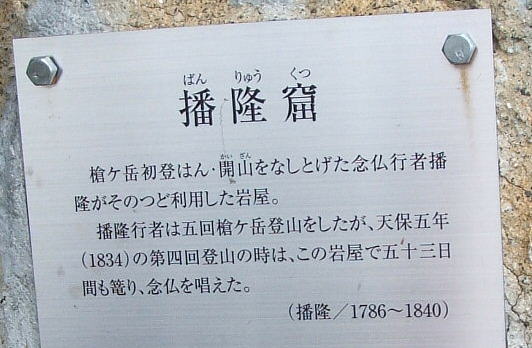 ばん りゅう くつ
播隆窟
かい ざん
槍ケ岳初登はん・開山をなしとげた念仏行者播
隆がそのつど利用した岩屋。
播隆行者は五回槍ケ岳登山をしたが、天保五年
(1834)の第四回登山の時は、この岩屋で五十三日
間も篭り、念仏を唱えた。
(播隆／1786〜1840)